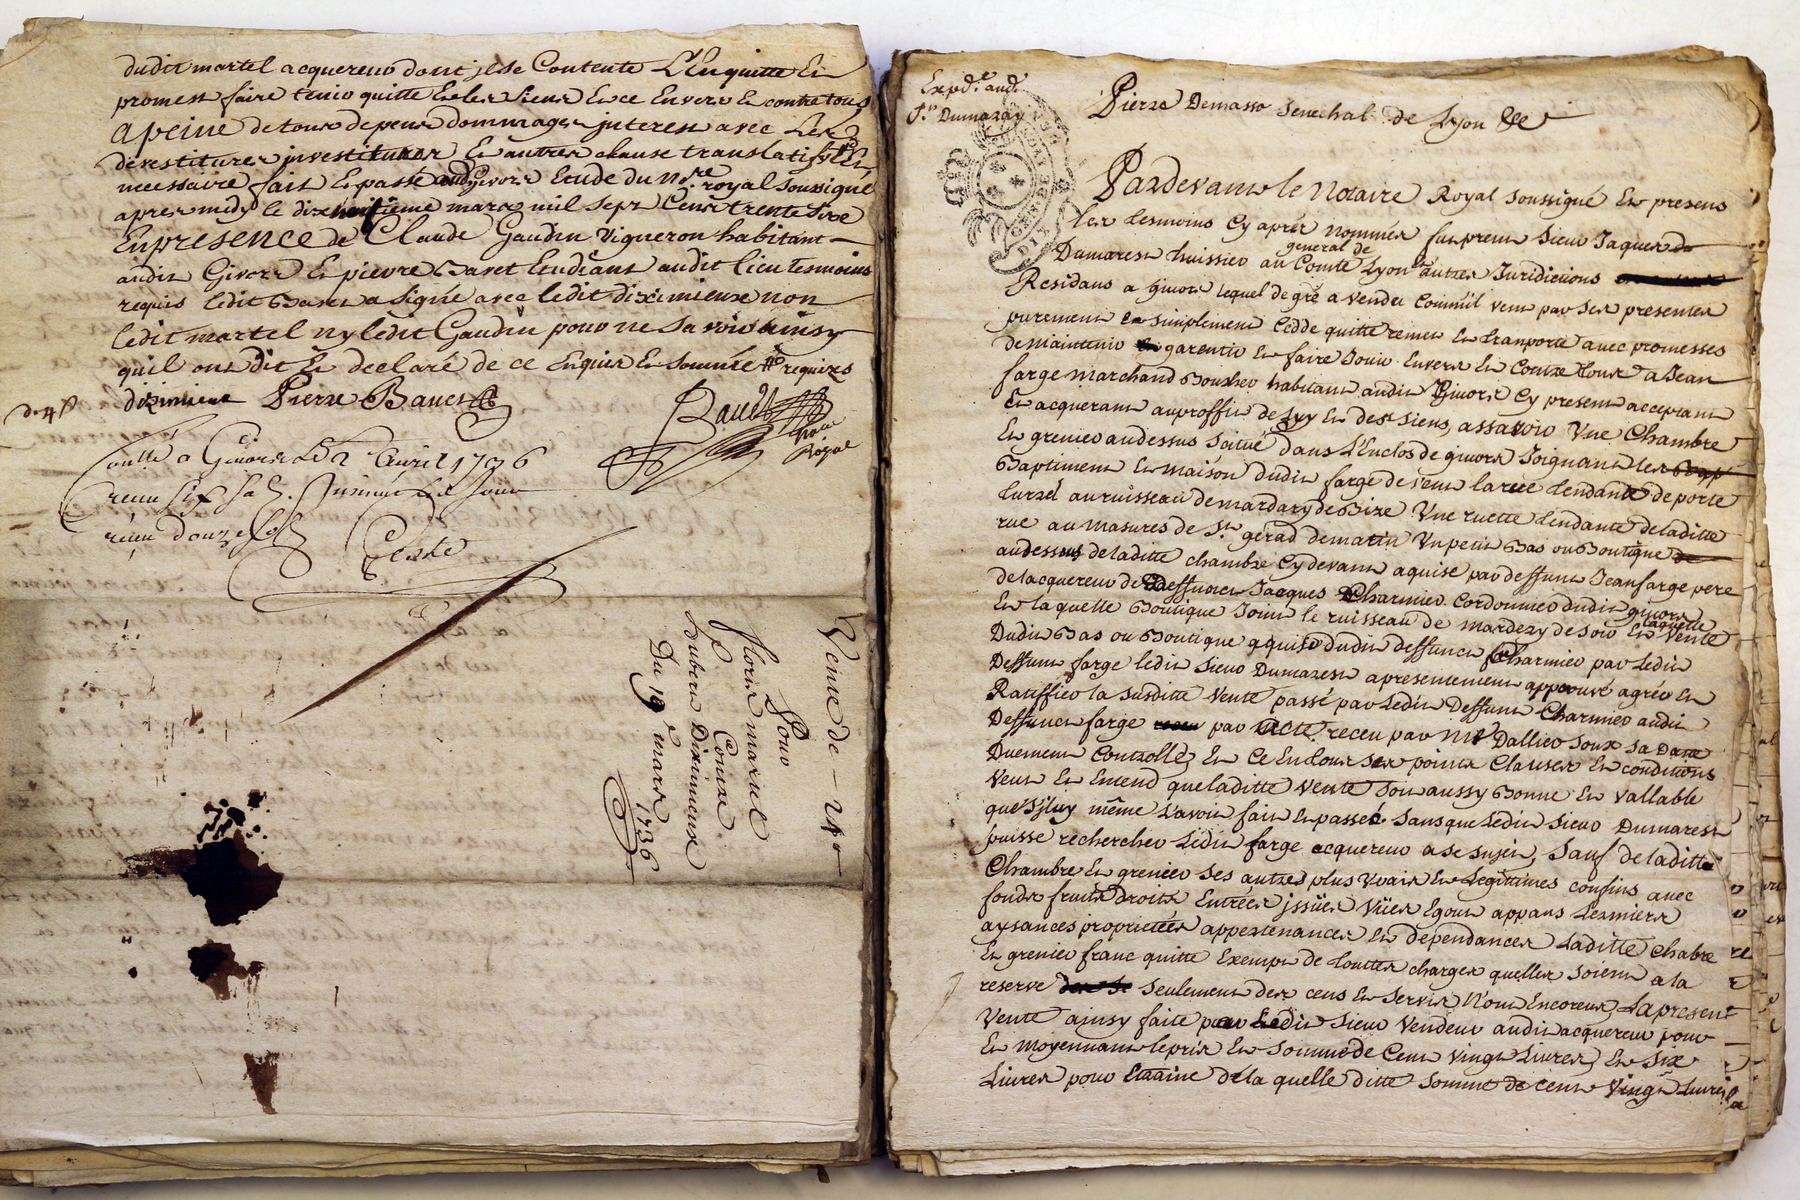 dudit martel acquereur dont jl se Contente L'En quitte Et
promest faire tenir quitte Luy les siens Et ce Envers Et contre tous
a peine de tous depens dommages jnterest avec Les
devestitures jnvestitures Et autres clause translatifve Et
necessaire fait Et passé audit givors Etude du no.re royal soussigné
apres midy le dix neufieme mars mil sept Cent trente Sixe
En presence de Claude Gaudin Vigneron habitant
audit Givors Et pierre Baret Etudiant audit lieu tesmoins
requis ledit Baret a signé avec ledit diximieux non
ledit martel ny ledit Gaudin pour ne savoir ainsy
quil ont dit Et declaré de ce Enquis Et sommée # requizs
diximieux Pierre Baret
Baudet
no.re
Royal
Con.llé a Givors Le 2 Avril 1736
receu six sols. Jnsinué Led jour
receu douze sols
Vente de 24
Pour
floris martel
Contre
hubert Diximieux
Du 19e mars 1736
Exped.é aud.
S.r Dumaray
Pierre Demasso Senechal de Lyon &c
DIX
Pardevant le Notaire Royal Soussigné Et presens
les tesmoins Cy aprés nommés fut present Sieur Jaques
Dumarest huissier au Comté general de Lyon Et autres Juridictions
Residans a givors lequel de gré a vendu Comm'il vent par ses presentes
purement Et simplement Cedde quitte remet Et tranporte avec promesses
de maintenir garentir Et faire Jouir Envers Et Contre tous a Jean
farge marchand Boucher habitant audit Givors Cy present acceptant
Et acquerant auproffit de Luy Et des siens, assavoir Une Chambre
Et grenier audessus Scitué dans L'Enclos de givors Joignant les
Baptiment Et maison dudit farge de vent la rue tendante de porte
au ruisseau de mardary de Bize Une ruette tendante de laditte
rue au Masures de S.t gérad de matin Un petit Bas ou Boutique
audessous de laditte chambre Cy devant aquise par deffunt Jean farge pere
de lacquereur de deffunct Jacques Charmier Cordonnier dudit givors
Et laquelle Boutique Joint le ruisseau de mardery de soir Et laquelle Vente
Dudit Bas ou Boutique aquise dudit deffunct Charmier par Ledit
Deffunt farge ledit sieur Dumarest apresentement approuvé agrée Et
Ratiffier la susditte Vente passé par Ledit Deffunt Charmier audit
Deffunct farge par acte receu par M.e Dallier Soux Sa Date
Duement Controllé Et Ce En tous ses points Clauses Et conditions
Veut Et Entend que laditte Vente Soit aussy Bonne Et Vallable
que s'jluy même L'avoit fait Et passée Sans que Ledit Sieur Dumarest
puisse rechercher Ledit farge acquereur a se sujet, Sauf de laditte
Chambre Et grenier Ses autres plus Vrais Et Legittimes confins avec
fonds fruits Droits Entrées jssües Vües Egout appans
aysances proprietées appertenances Et dependances Laditte Chabre
Et grenier franc quitte Exempt de touttes charges quelles Soient a la
reserve Seulement des cens Et servis Nont Encorus, La present
Vente ainsy faite par Ledit Sieur Vendeur audit acquereur pour
Et moyennant leprix Et Somme de Cent Vingt Livres Et Six
Livres pour Etraine de la quelle ditte Somme de cent Vingt Livres